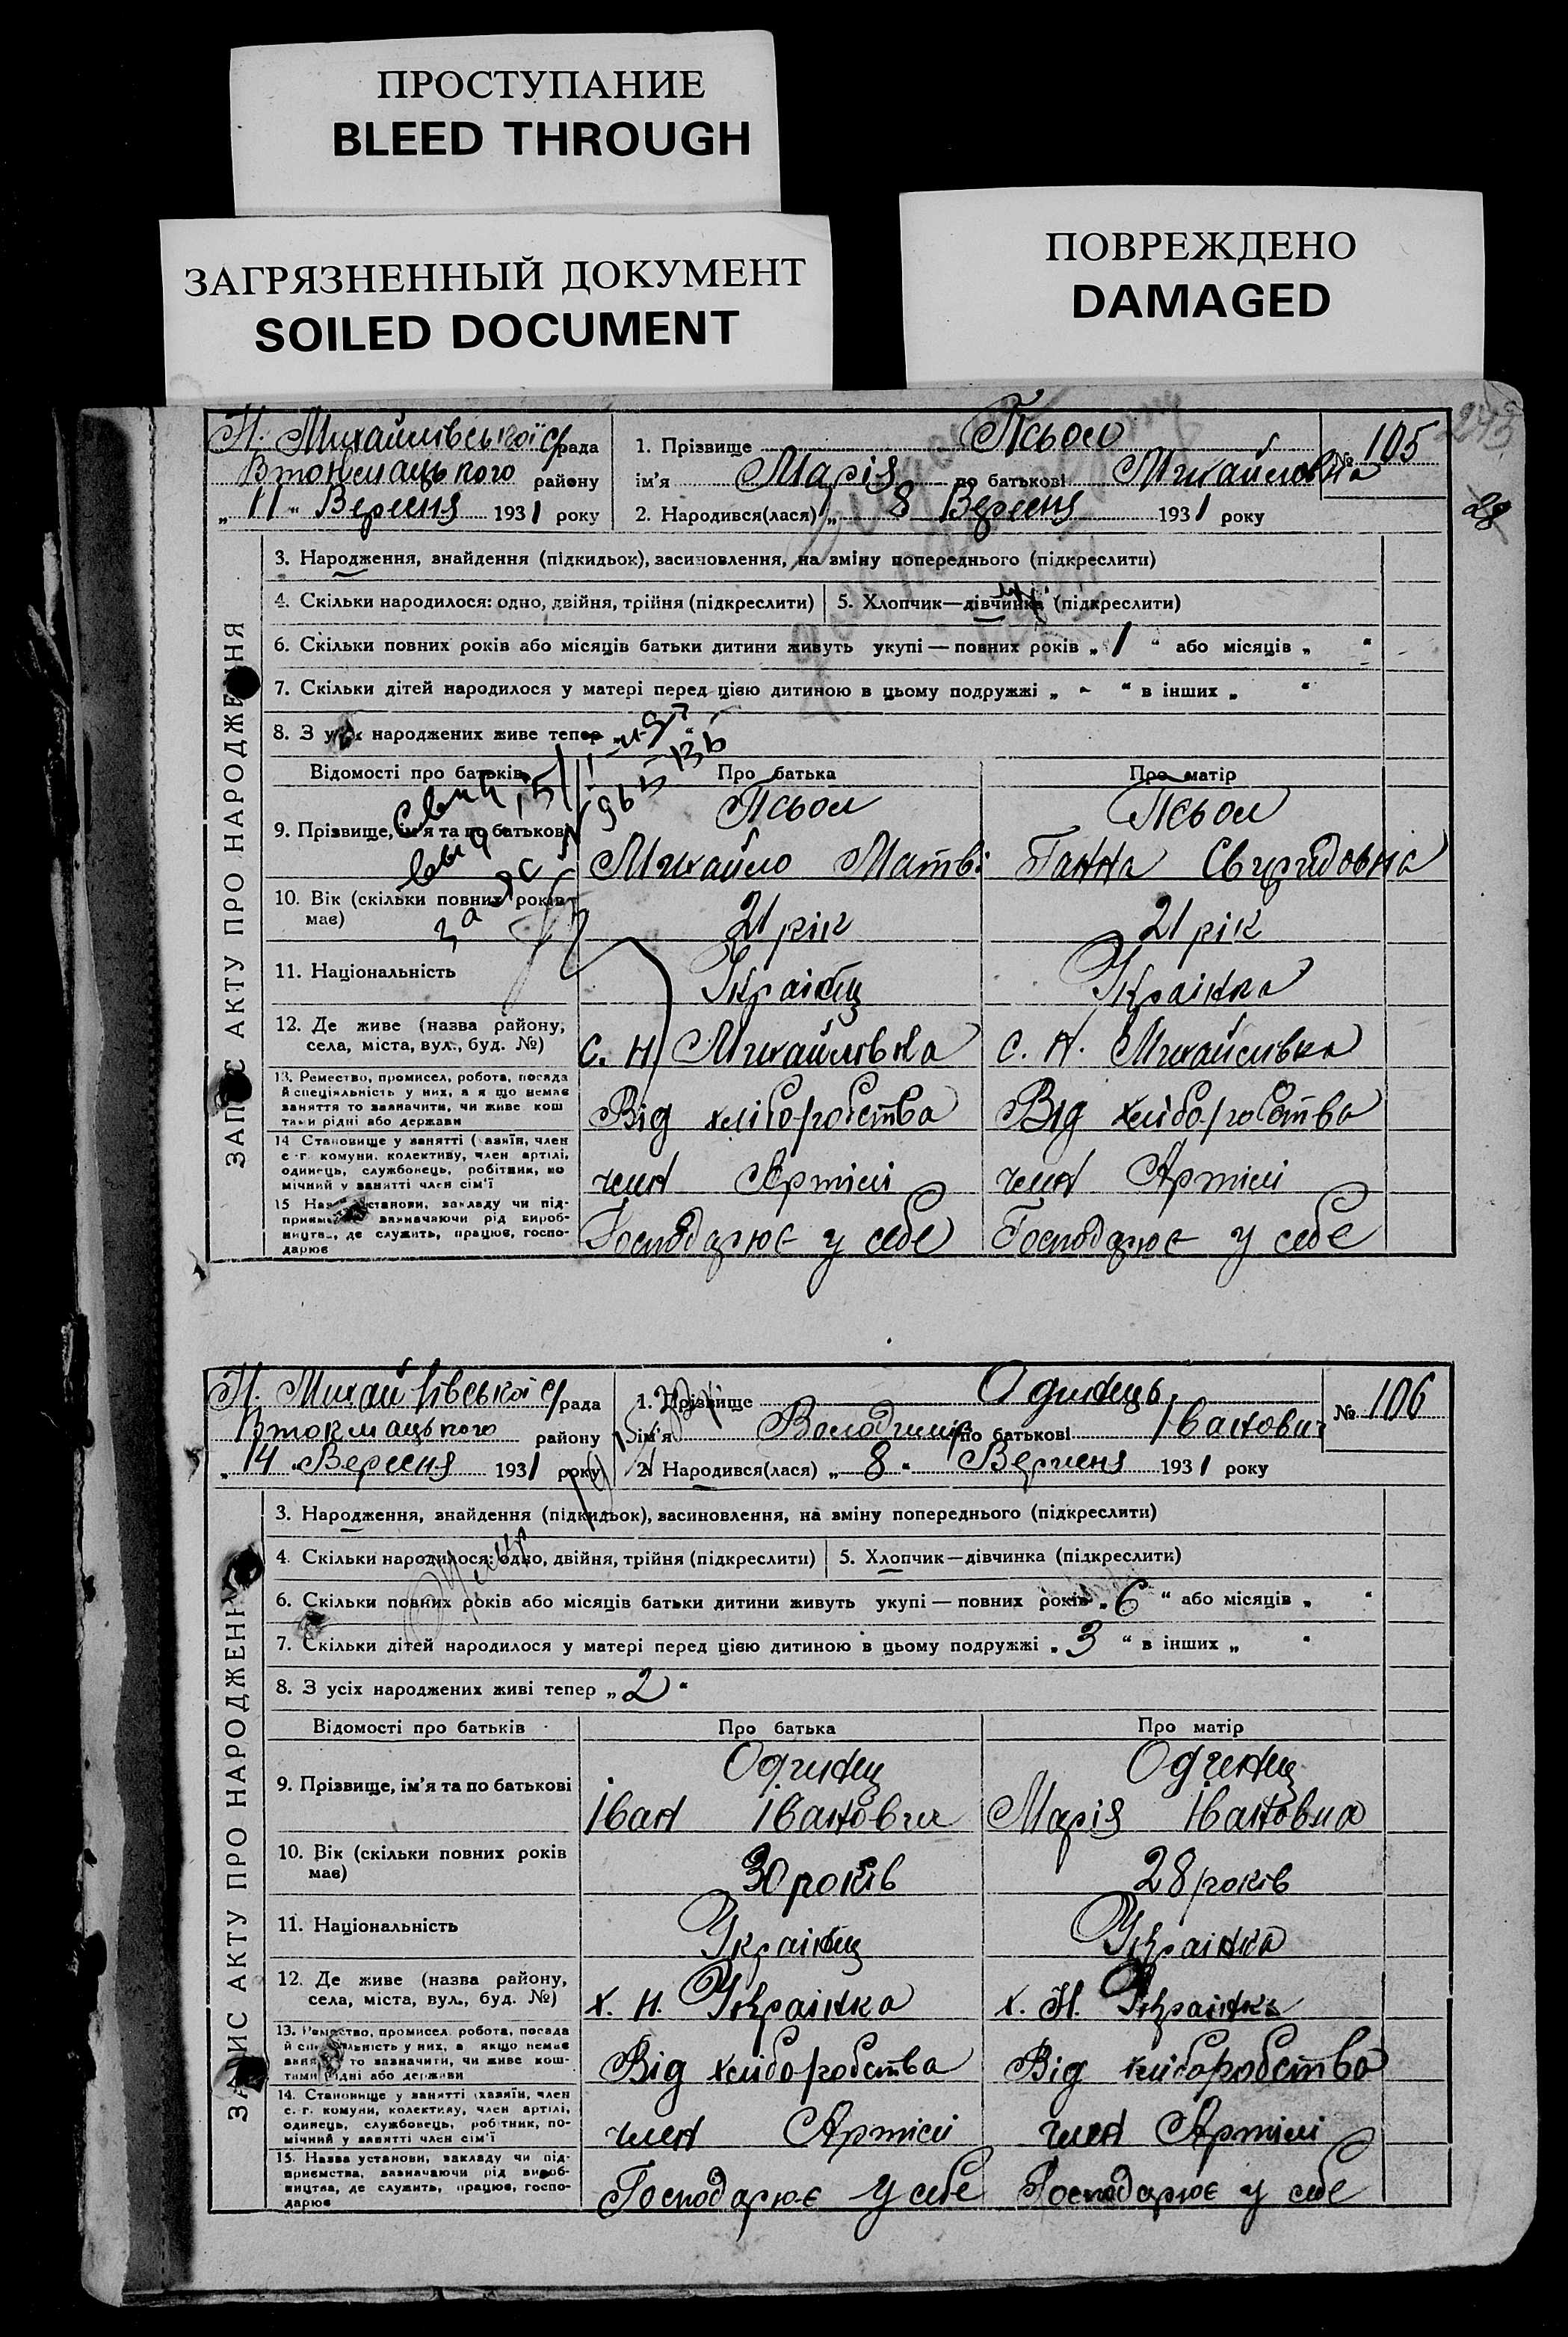 ПРОСТУПАНИЕ
BLEED THROUGH
ЗАГРЯЗНЕННЫЙ ДОКУМЕНТ
SOILED DOCUMENT
ПОВРЕЖДЕНО
DAMAGED
Н. Михайлівської с/рада
Втокмацького району
„ 11 " Вересня 1931 року
1. Прізвище Псьол
№ 105
ім'я Марія по батькові Михайловна
2. Народився(лася) „ 8 Вересня 1931 року
28
ЗАПИС АКТУ ПРО НАРОДЖЕННЯ
3. Народження, знайдення (підкидьок), засиновлення, на зміну попереднього (підкреслити)
4. Скільки народилося: одно, двійня, трійня (підкреслити) 5. Хлопчик—дівчинка (підкреслити)
6. Скільки повних років або місяців батьки дитини живуть укупі — повних років „ 1 " або місяців „ "
7. Скільки дітей народилося у матері перед цією дитиною в цьому подружжі „ - " в інших „ "
8. З усіх народжених живе тепер
Відомості про батьків Про батька Про матір
9. Прізвище, ім'я та по батькові
Псьол Псьол
Михайло Матві Ганна Свиридовна
10. Вік (скільки повних років має)
21 рік 21 рік
11. Національність
Українец Українка
12. Де живе (назва району, села, міста, вул., буд. №)
с. Н Михайлівка с. Н. Михайлівка
13. Ремество, промисел, робота, посада
й спеціяльність у них, а якщо немає
заняття то зазначити, чи живе кош
тами рідні або держави
Від хліборобства Від хліборобства
14 Становище у занятті (хазяїн, член
с-г комуни, колективу, член артілі,
одинець, службовець, робітник, по
мічний у занятті член сім'ї
член Артілі член Артілі
15 Назва установи, закладу чи під-
приємства, зазначаючи рід вироб-
ництва, де служить, працює, госпо-
дарює
Господарює у себе Господарює у себе
Н. Михайлівської с/рада
Втокмацького району
„ 14 " Вересня 1931 року
1. Прізвище Одинець
№ 106
ім'я Володимир по батькові Іванович
2. Народився(лася) „ 8 " Вересня 1931 року
ЗАПИС АКТУ ПРО НАРОДЖЕННЯ
3. Народження, знайдення (підкидьок), засиновлення, на зміну попереднього (підкреслити)
4. Скільки народилося: одно, двійня, трійня (підкреслити) 5. Хлопчик—дівчинка (підкреслити)
6. Скільки повних років або місяців батьки дитини живуть укупі — повних років „ 6 " або місяців „ "
7. Скільки дітей народилося у матері перед цією дитиною в цьому подружжі „ 3 " в інших „ "
8. З усіх народжених живі тепер „ 2 "
Відомості про батьків Про батька Про матір
9. Прізвище, ім'я та по батькові
Одинец Одинец
Іван Іванович Марія Івановна
10. Вік (скільки повних років має)
30 років 28 років
11. Національність
Українец Українка
12. Де живе (назва району, села, міста, вул., буд. №)
х. Н. Українка х. Н. Українка
13. Ремество, промисел, робота, посада
й спеціяльність у них, а якщо немає
заняття то зазначити, чи живе кош-
тами рідні або держави
Від хліборобства Від хліборобства
14. Становище у занятті хазяїн, член
с. г. комуни, колективу, член артілі,
одинець, службовець, робітник, по-
мічний у занятті член сім'ї
член Артілі член Артілі
15. Назва установи, закладу чи під-
приємства, зазначаючи рід вироб-
ництва, де служить, працює, госпо-
дарює
Господарює у себе Господарює у себе